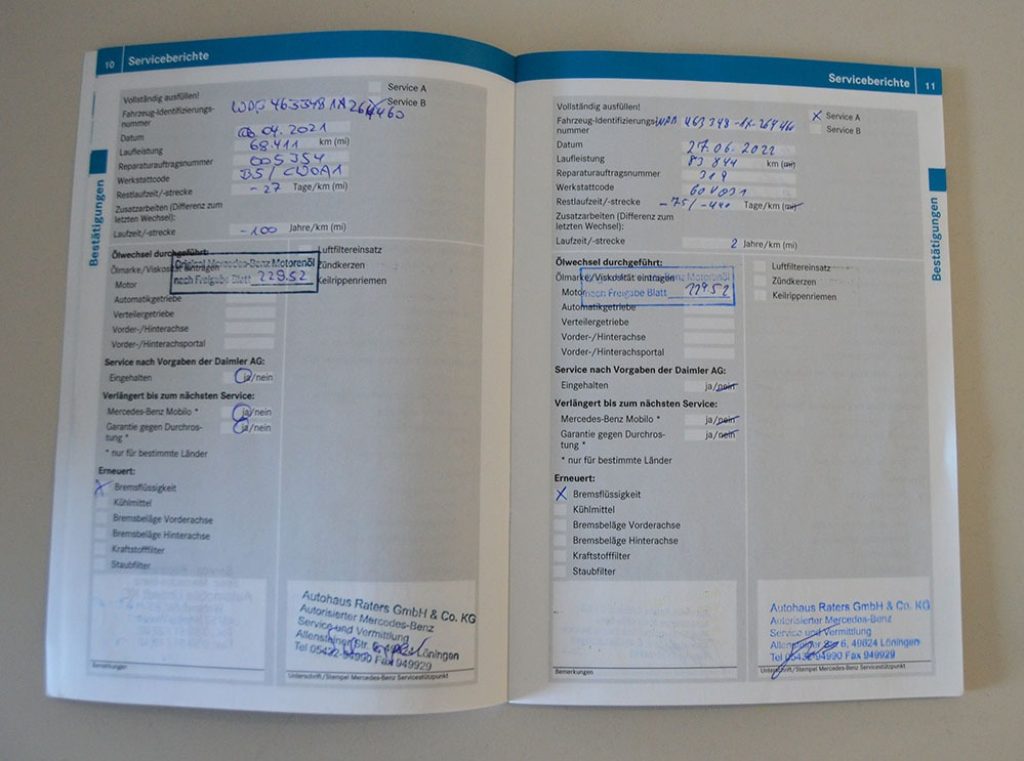 10 Serviceberichte
Service A
Vollständig ausfüllen!
Service B
Fahrzeug-Identifizierungs-
nummer
Datum 04.2021
Laufleistung 68.411 km (mi)
Reparaturauftragsnummer 005354
Werkstattcode
Restlaufzeit/-strecke -27 Tage/km (mi)
Zusatzarbeiten (Differenz zum
letzten Wechsel):
Laufzeit/-strecke -100 Jahre/km (mi)
Ölwechsel durchgeführt:
Luftfiltereinsatz
Original Mercedes-Benz Motorenöl
Ölmarke/Viskosität eintragen
Zündkerzen
nach Freigabe Blatt 229.52
Motor
Keilrippenriemen
Automatikgetriebe
Verteilergetriebe
Vorder-/Hinterachse
Vorder-/Hinterachsportal
Service nach Vorgaben der Daimler AG:
Eingehalten ja/nein
Verlängert bis zum nächsten Service:
Mercedes-Benz Mobilo * ja/nein
Garantie gegen Durchros- ja/nein
tung *
* nur für bestimmte Länder
Erneuert:
X Bremsflüssigkeit
Kühlmittel
Bremsbeläge Vorderachse
Bremsbeläge Hinterachse
Kraftstofffilter
Staubfilter
Autohaus Raters GmbH & Co. KG
Autorisierter Mercedes-Benz
Service und Vermittlung
Str. 6, Löningen
Tel 05432-94990 Fax 949929
Bemerkungen
Unterschrift/Stempel Mercedes-Benz Servicestützpunkt
Bestätigungen
Serviceberichte 11
Vollständig ausfüllen!
X Service A
Fahrzeug-Identifizierungs-
Service B
nummer
Datum 27.06.2022
Laufleistung 83844 km (mi)
Reparaturauftragsnummer 319
Werkstattcode
Restlaufzeit/-strecke Tage/km (mi)
Zusatzarbeiten (Differenz zum
letzten Wechsel):
Laufzeit/-strecke 2 Jahre/km (mi)
Ölwechsel durchgeführt:
Luftfiltereinsatz
Ölmarke/Viskosität eintragen
Zündkerzen
Motor
nach Freigabe Blatt 229.52
Keilrippenriemen
Automatikgetriebe
Verteilergetriebe
Vorder-/Hinterachse
Vorder-/Hinterachsportal
Service nach Vorgaben der Daimler AG:
Eingehalten ja/nein
Verlängert bis zum nächsten Service:
Mercedes-Benz Mobilo * ja/nein
Garantie gegen Durchros- ja/nein
tung *
* nur für bestimmte Länder
Erneuert:
X Bremsflüssigkeit
Kühlmittel
Bremsbeläge Vorderachse
Bremsbeläge Hinterachse
Kraftstofffilter
Staubfilter
Autohaus Raters GmbH & Co. KG
Autorisierter Mercedes-Benz
Service und Vermittlung
Str 6, 49624 Löningen
Tel 05432-94990 Fax 949929
Bemerkungen
Unterschrift/Stempel Mercedes-Benz Servicestützpunkt
Bestätigungen